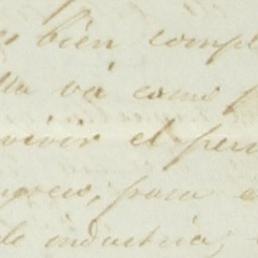 bien compl
va como
vivir el pen
para e
de industria,